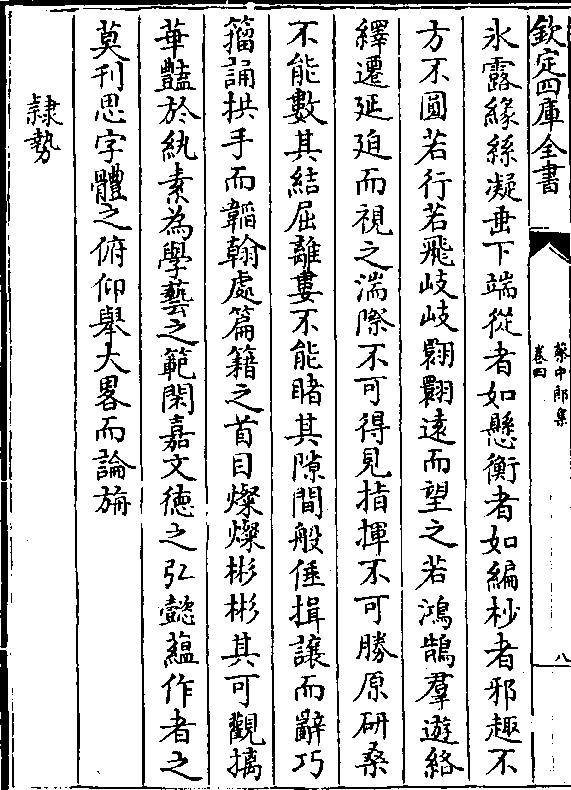 欽定四庫全書
蔡中郎集
卷四
八
氷露緣絲凝垂下端從者如懸衡者如編杪者邪趣不
方不圓若行若飛岐岐翾翾遠而望之若鴻鵠羣遊絡
繹遷延迫而視之湍際不可得見指揮不可勝原研桑
不能數其結屈離婁不能睹其隙間般倕揖讓而辭巧
籀誦拱手而韜翰處篇籍之首目燦燦彬彬其可觀摛
華豔於紈素為學藝之範閑嘉文德之弘懿藴作者之
莫刋思字體之俯仰舉大畧而論旃
隷勢